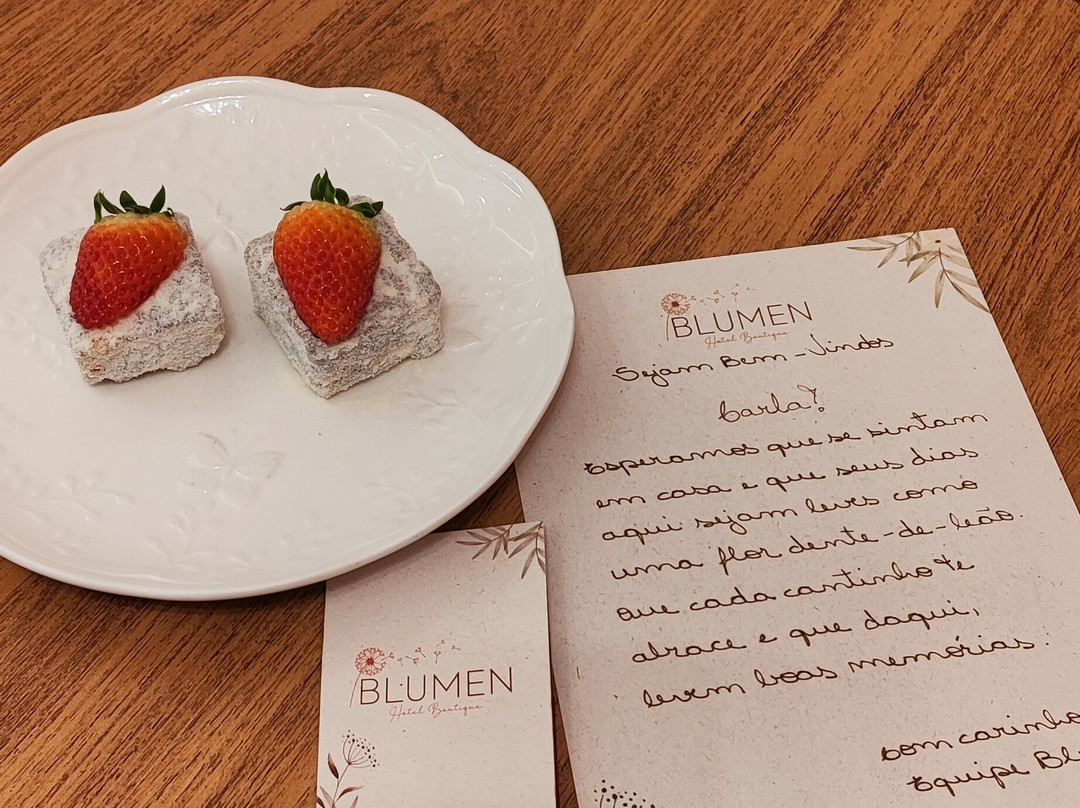 BLUMEN
Hotel Boutique
Sejam Bem-Vindos
Carla!
Esperamos que se sintam
em casa e que seus dias
aqui sejam leves como
uma flor dente-de-leão.
Que cada cantinho te
abrace e que daqui,
levem boas memórias.
Com carinho
Equipe Bl
BLUMEN
Hotel Boutique